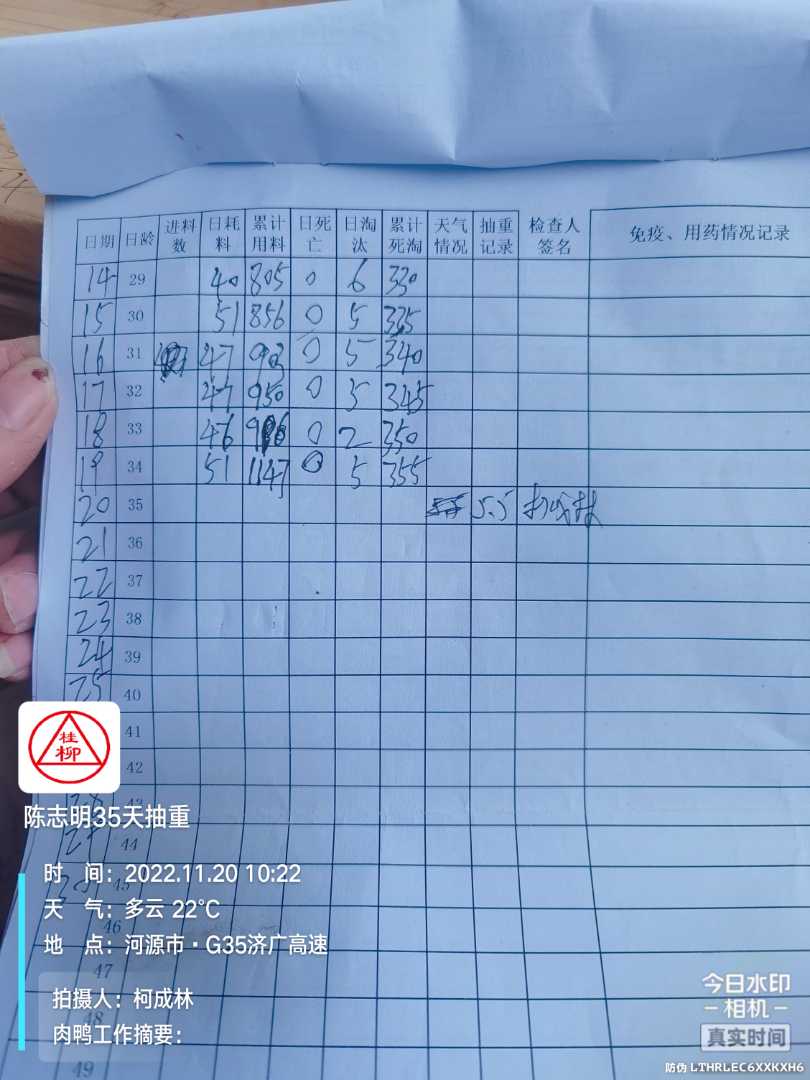 日期 日龄 进料数 日耗料 累计用料 日死亡 日淘汰 累计死淘 天气情况 抽重记录 检查人签名 免疫、用药情况记录
14 29 40 805 0 6 330
15 30 51 856 0 5 335
16 31 47 903 0 5 340
17 32 47 950 0 5 345
18 33 46 0 2 350
19 34 51 1147 0 5 355
20 35 5.5 柯成林
21 36
22 37
23 38
24 39
25 40
41
42
43
44
45
46
47
48
49
桂柳
陈志明35天抽重
时 间：2022.11.20 10:22
天 气：多云 22℃
地 点：河源市·G35济广高速
拍摄人：柯成林
肉鸭工作摘要：
今日水印
相机
真实时间
防伪 LTHRLEC6XXKXH6